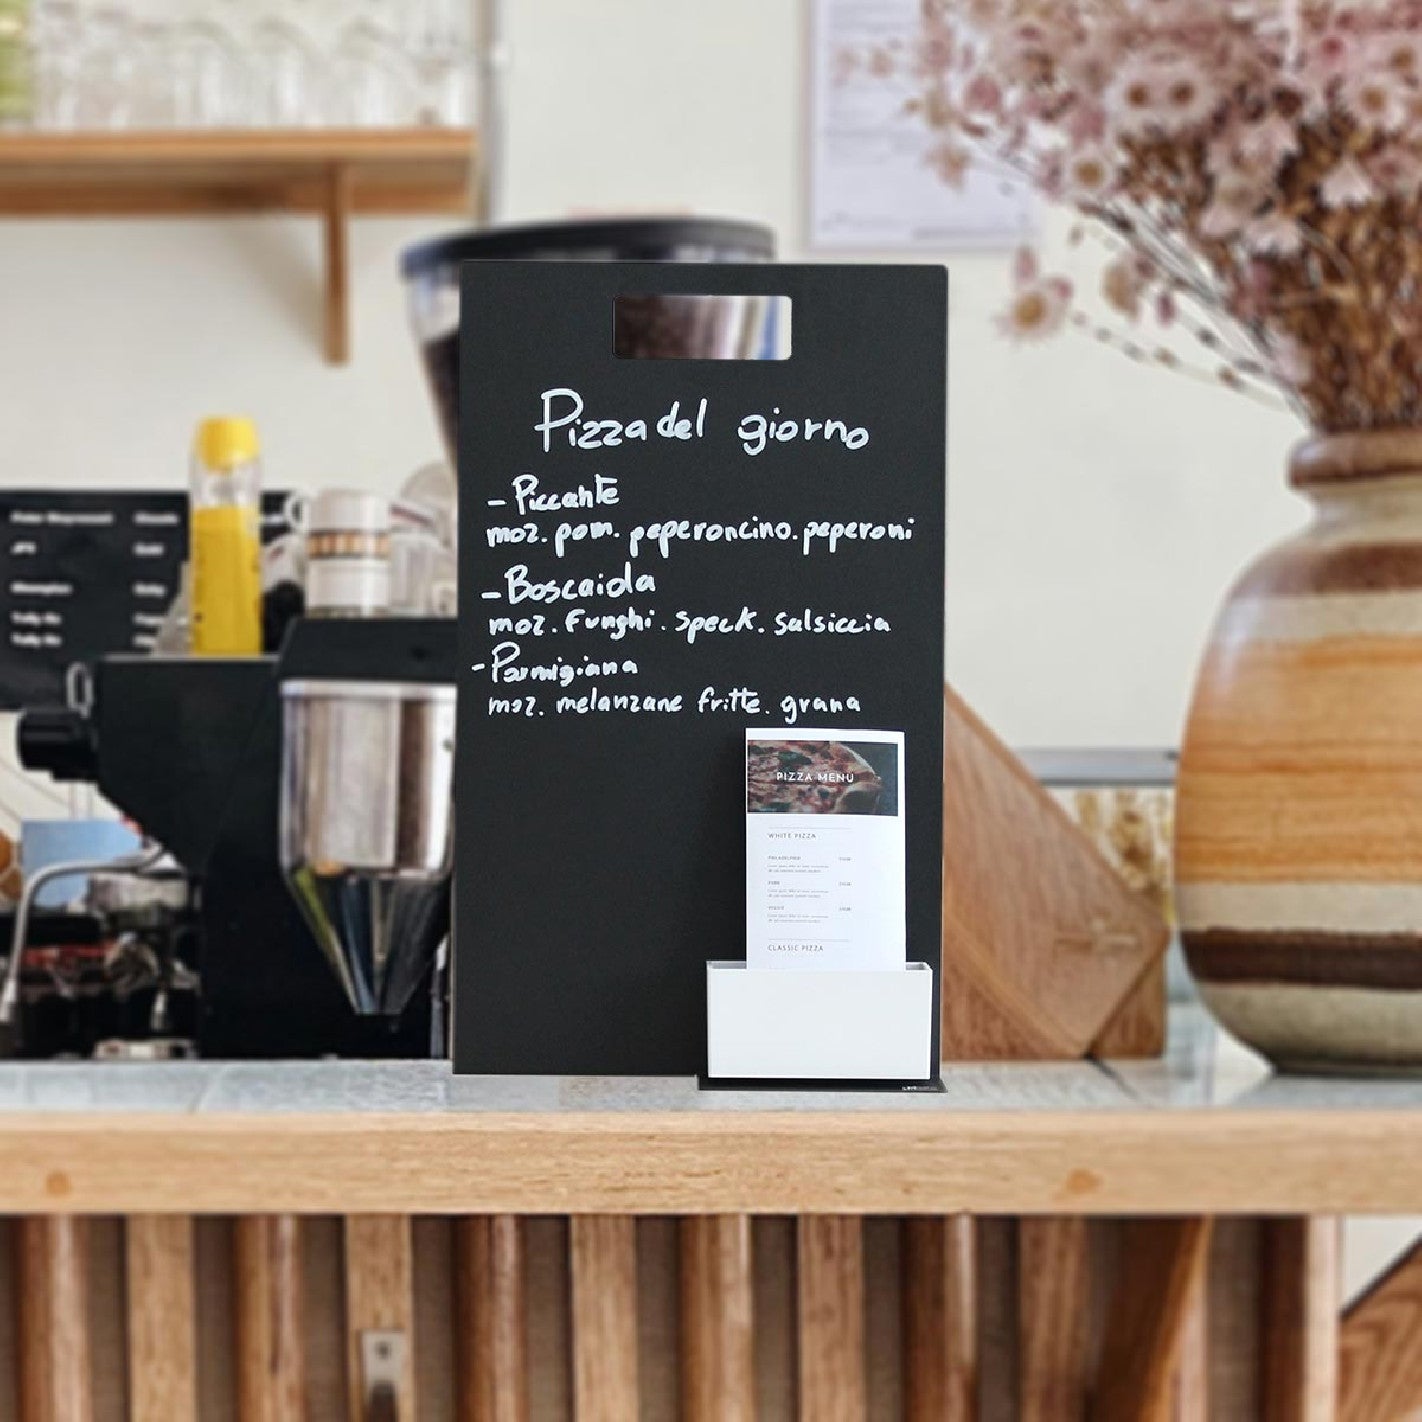 Pizza del giorno
- Piccante
moz. pom. peperoncino. peperoni
- Boscaiola
moz. funghi. speck. salsiccia
- Parmigiana
moz. melanzane fritte. grana
PIZZA MENU
WHITE PIZZA
PHILADELPHIA
CLASSIC PIZZA